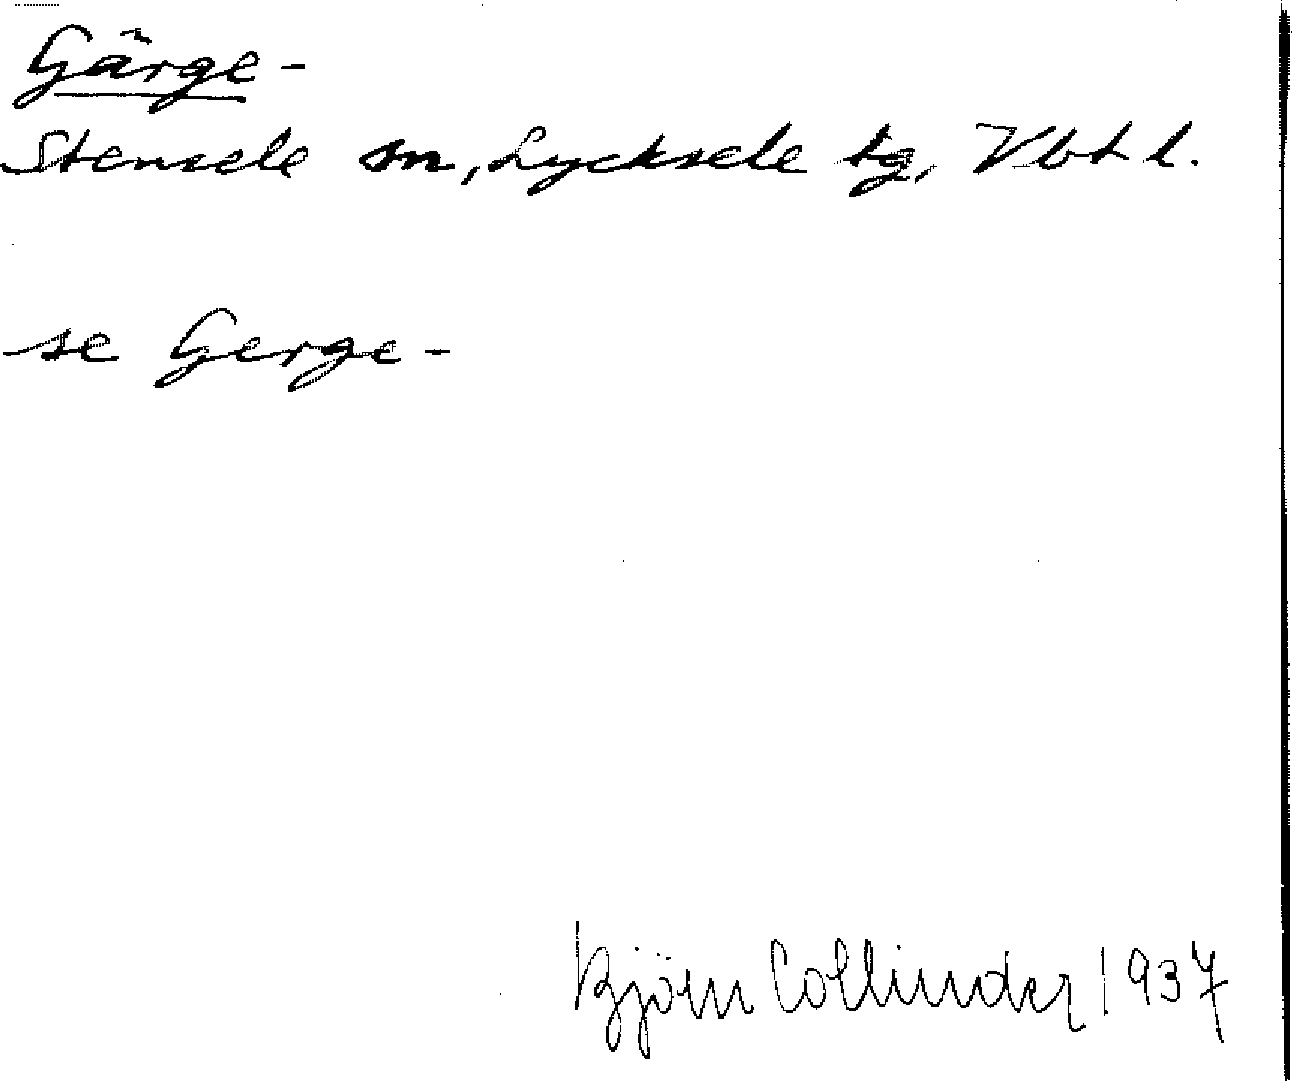 Gärge-
Stensele sn, Lycksele tg, Vbt l.
se Gerge-
Björn Collinder 1937